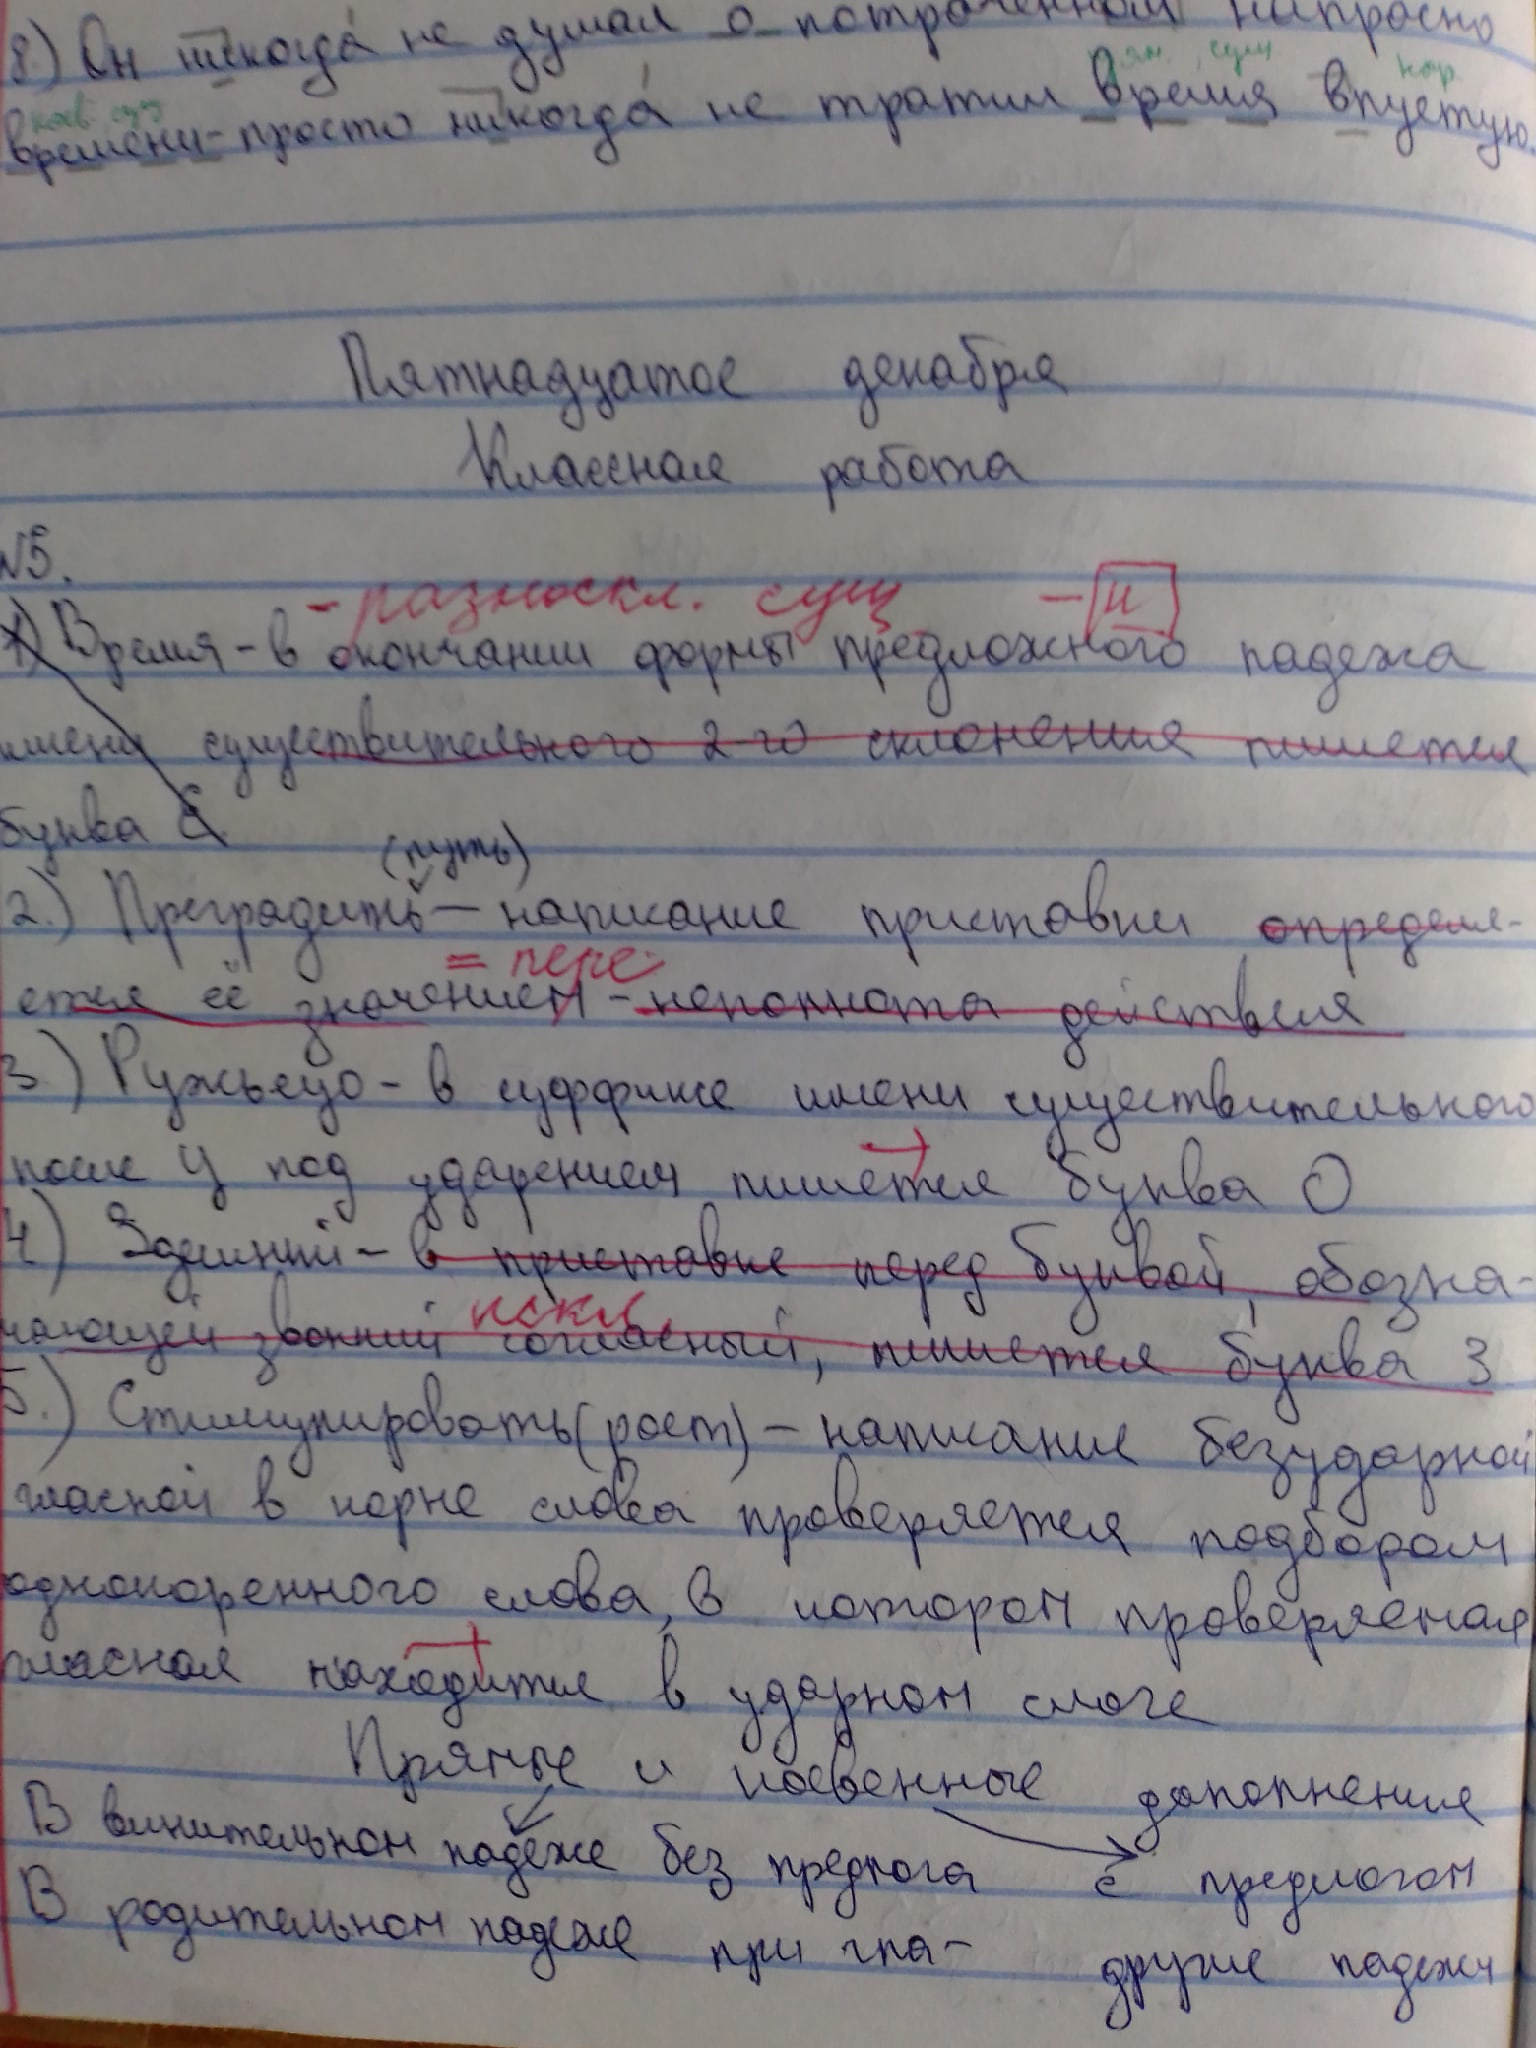 8.) Он никогда не думал о потраченном напрасно
косв. сущ. прям. сущ. нар.
времени-просто никогда не тратил время впустую.
Пятнадцатое декабря
Классная работа
№5.
- разноскл. сущ. - и
1) Время - в окончании формы предложного падежа
имени существительного 2-го склонения пишется
буква Е
(путь)
2.) Преградить - написание приставки определя-
= пере
ется её значением - неполнота действия
3.) Ружьецо - в суффиксе имени существительного
после Ц под ударением пишется буква О
4) Здешний - в приставке перед буквой, обозна-
искл.
чающей звонкий согласный, пишется буква З
5.) Стимулировать (рост) - написание безударной
гласной в корне слова проверяется подбором
однокоренного слова, в котором проверяемая
гласная находится в ударном слоге
Прямые и косвенные дополнения
В винительном падеже без предлога с предлогом
В родительном падеже при гла- другие падежи